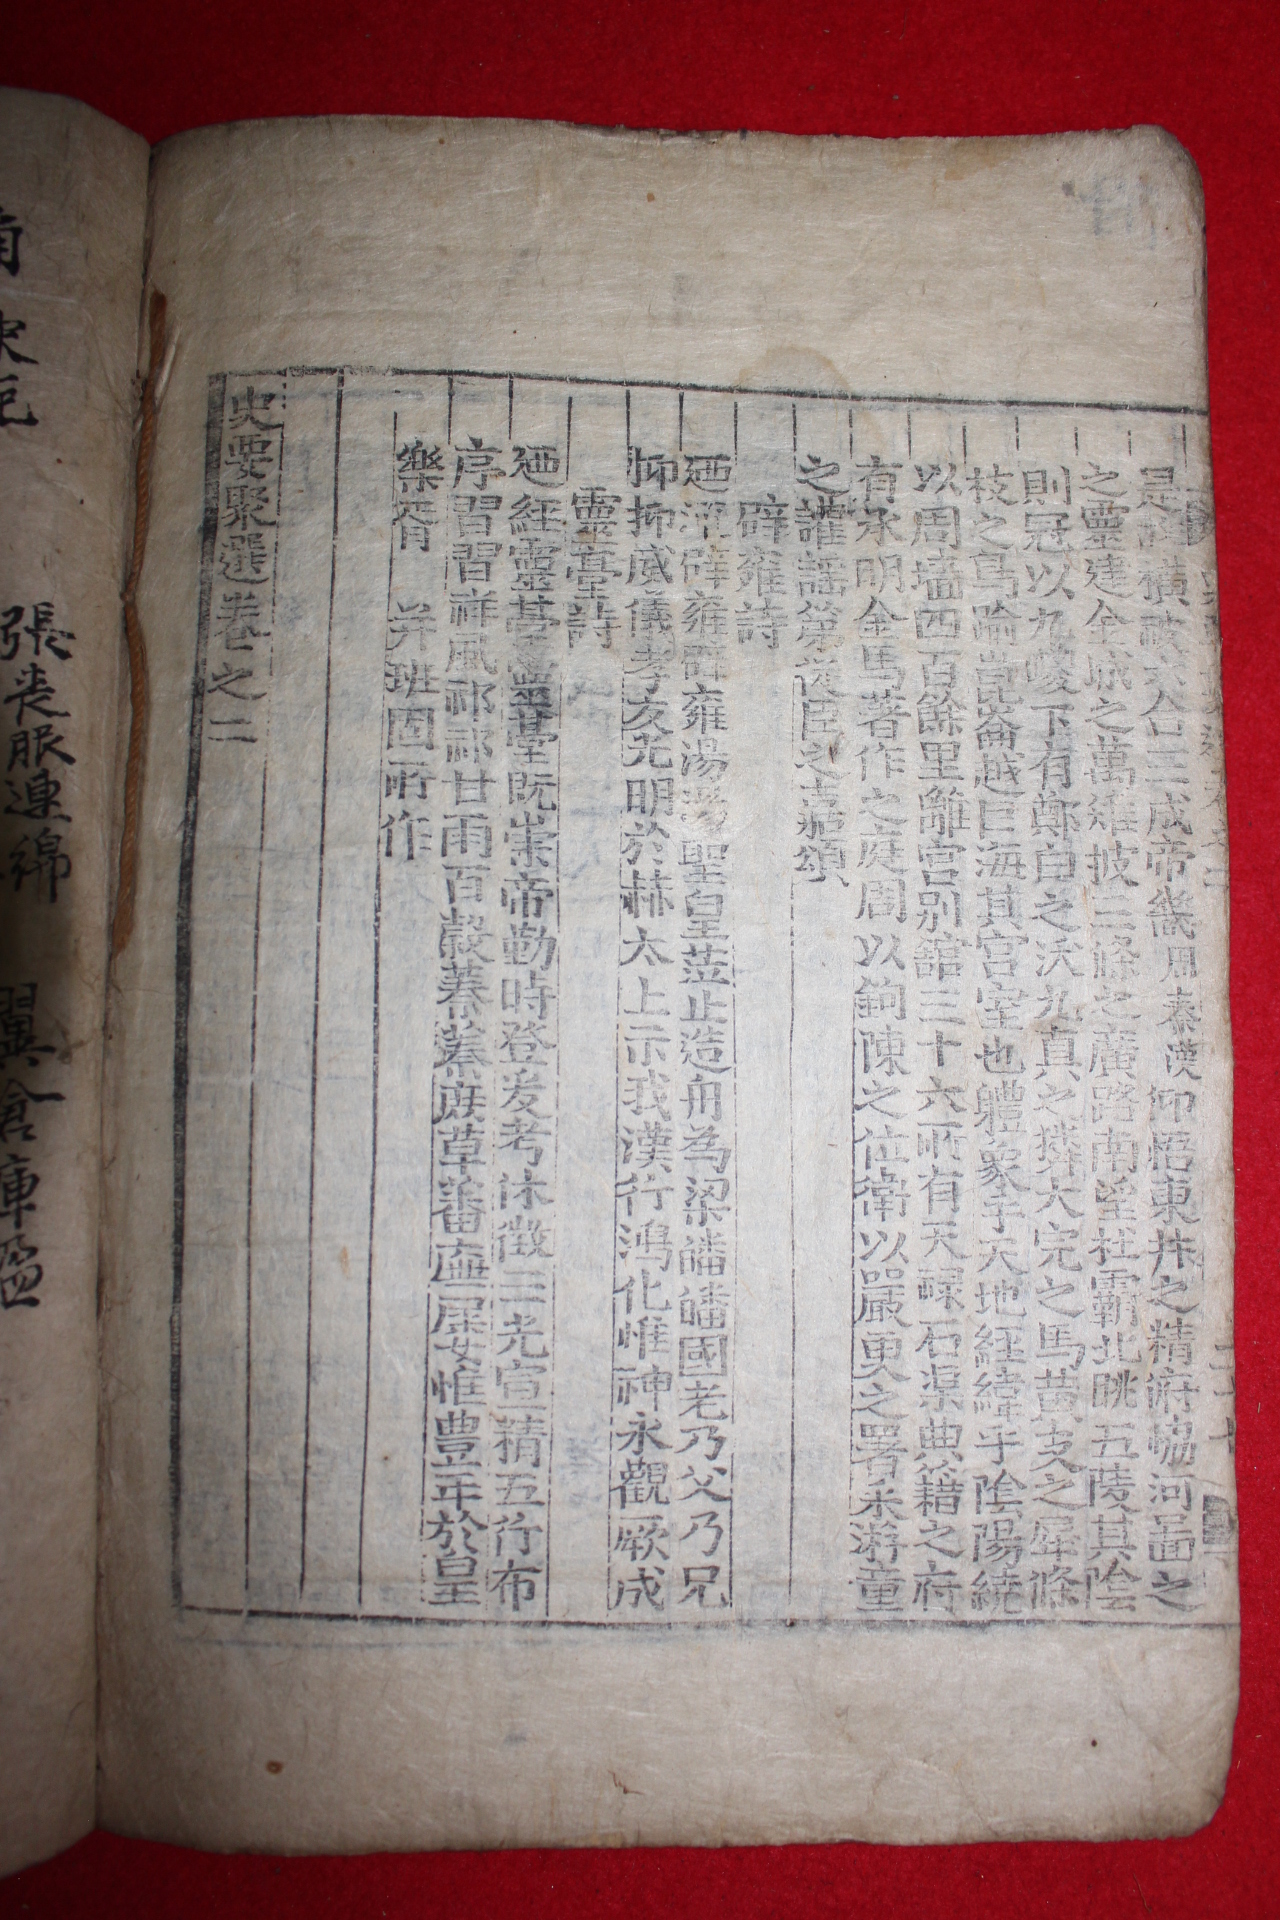 是故橫被六合三成帝畿周秦漢仰悟東井之精俯協河圖之
之靈建金城之萬雉披三條之廣路南望杜霸北眺五陵其陰
則冠以九嵕下有鄭白之沃九真之獜大宛之馬黃支之犀條
枝之鳥踰崑崙越巨海其宮室也軆象乎天地經緯乎陰陽繞
以周墻四百餘里離宮別舘三十六所有天祿石渠典籍之府
有承明金馬著作之庭周以鉤陳之位衛以嚴更之署采游童
之讙謠第從臣之嘉頌
辟雍詩
廼流辟雍辟雍湯湯聖皇莅止造舟為梁皤皤國老乃父乃兄
抑抑威儀孝友光明於赫太上示我漢行鴻化惟神永觀厥成
靈臺詩
廼經靈臺靈臺既崇帝勤時登爰考休徵三光宣精五行布
序習習祥風祁祁甘雨百穀蓁蓁庶草蕃廡屢安惟豊年於皇
樂胥 并班固所作
史要聚選卷之二
張喪服連綿
翼倉庫盈